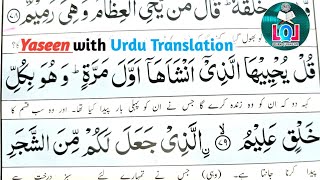 خَلْقَهٗ ؕ قَالَ مَنْ یُّحْیِ الْعِظَامَ وَ هِیَ رَمِیْمٌ ﴿۷۸﴾
Yaseen with Urdu Translation
قُلْ یُحْیِیْهَا الَّذِیْۤ اَنْشَاَهَاۤ اَوَّلَ مَرَّةٍ ؕ وَ هُوَ بِكُلِّ
کہہ دو کہ ان کو وہ زندہ کرے گا جس نے ان کو پہلی بار پیدا کیا تھا۔ اور وہ سب قسم کا
خَلْقٍ عَلِیْمُ ۙ﴿۷۹﴾ الَّذِیْ جَعَلَ لَكُمْ مِّنَ الشَّجَرِ
پیدا کرنا جانتا ہے۔ (وہی) جس نے تمہارے لئے سبز درخت سے